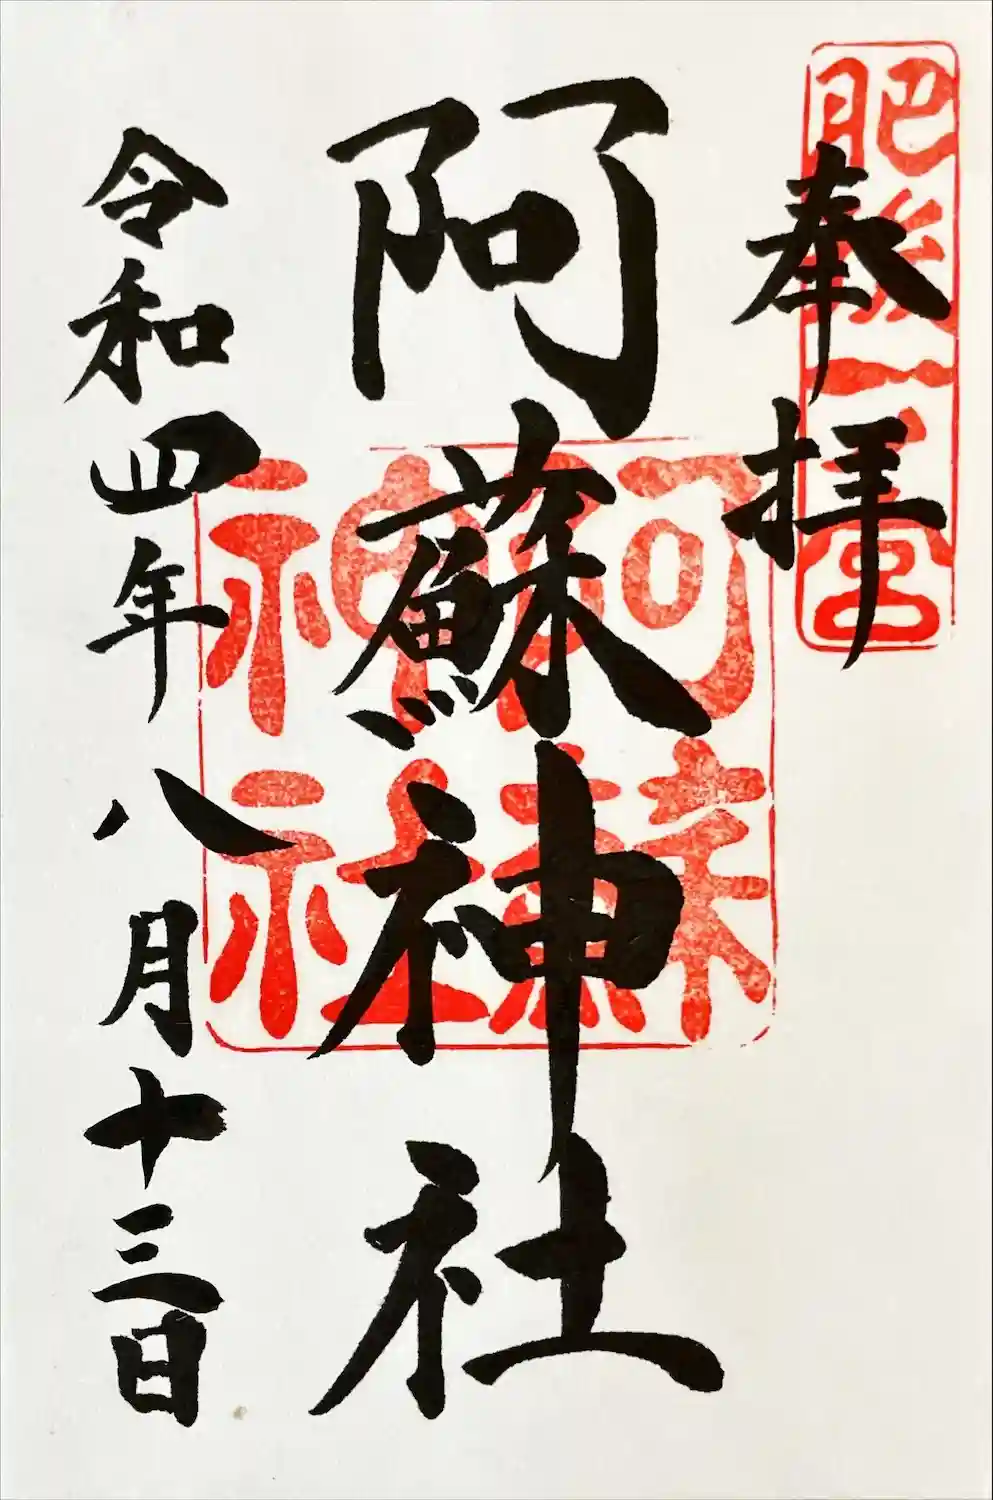 肥後一之宮
奉拝
阿蘇神社
阿蘇神社
令和四年八月十三日